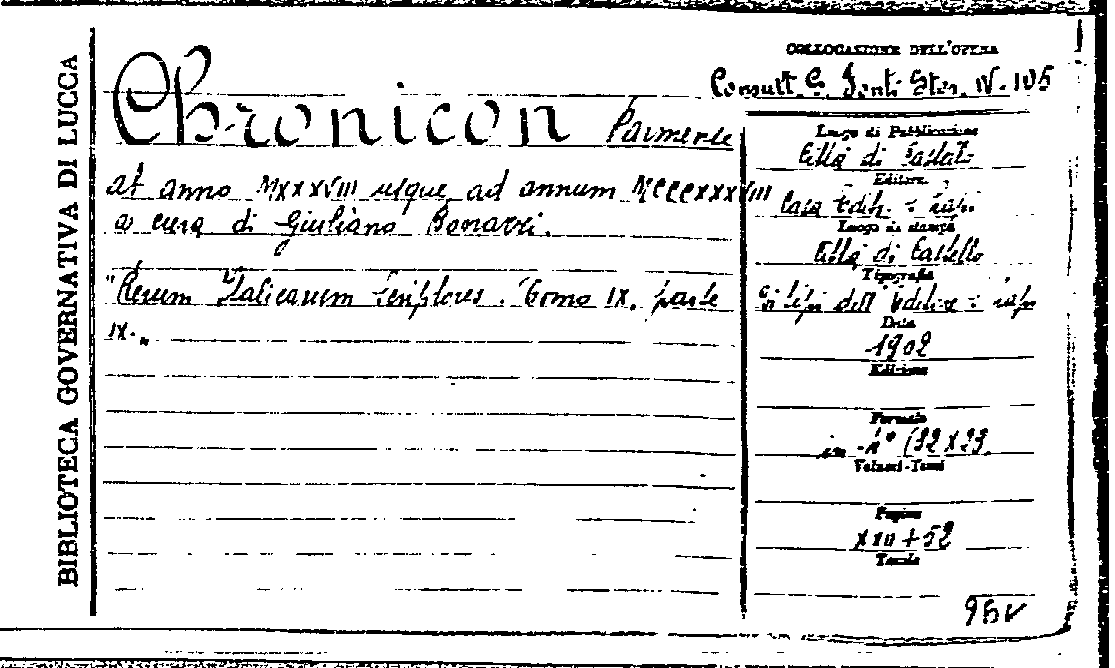 BIBLIOTECA GOVERNATIVA DI LUCCA
Chronicon Parmense
at anno MXXXVIII usque ad annum MCCCXXXVIII
a cura di Giuliano Bonazzi.
"Rerum Italicarum Scriptores. Tomo IX. parte
IX.„
COLLOCAZIONE DELL'OPERA
Consult. C. Font. Stor. IV. 105
Luogo di Pubblicazione
Città di Castello
Editore
Casa Edit. S. Lapi
Luogo di stampa
Città di Castello
Tipografia
tipi dell'Editore S. Lapi
Data
1902
Edizione
Formato
in-4° (32x23
Volumi-Tomi
Pagine
+ 52
Tavole